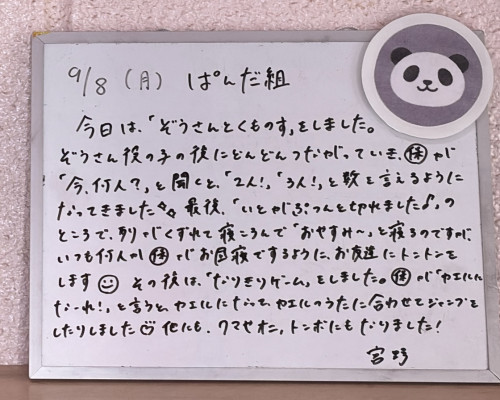 9/8 (月) ぱんだ組
今日は、「ぞうさんとくものす」をしました。
ぞうさん役の子の後にどんどんつながっていき、㊡が
「今、何人?」と聞くと、「2人!」「3人!」と数を言えるように
なってきました✨ 最後、「いとがぷつんと切れました♪」の
ところで、列がくずれて寝ころんで「おやすみ〜」と寝るのですが、
いつも何人か㊡がお昼寝でするように、お友達にトントンを
します☺ その後は、「なりきりゲーム」をしました。㊡が「カエルに
なーれ!」と言うと、カエルになって、カエルのうたに合わせてジャンプを
したりしました♡他にも、クマやオニ、トンボにもなりました!